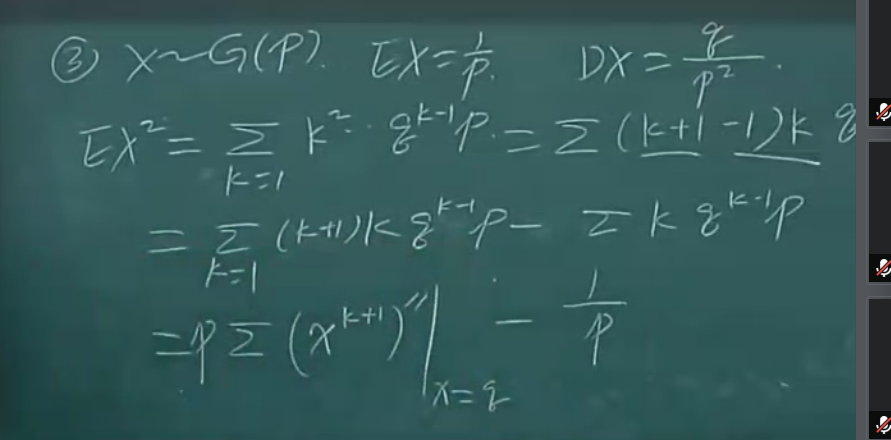 ③ X~G(P). EX=1/p. DX=q/p².
EX²= Σ_{k=1} k²·q^{k-1}p. = Σ(k+1-1)k q
= Σ_{k=1} (k+1)k q^{k-1}p - Σ k q^{k-1}p
=pΣ(x^{k+1})''|_{x=q} - 1/p